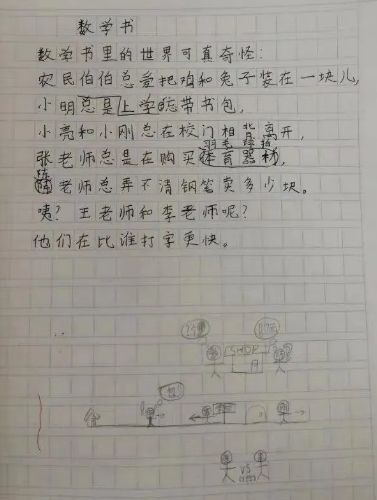 数学书
数学书里的世界可真奇怪：
农民伯伯总爱把鸡和兔子装在一块儿，
小明总是上学忘带书包，
小亮和小刚总在校门相背离开，
羽毛球拍
张老师总是在购买体育器材，
陈
老师总弄不清钢笔卖多少块。
咦？王老师和李老师呢？
他们在比谁打字更快。
SHOP
VS